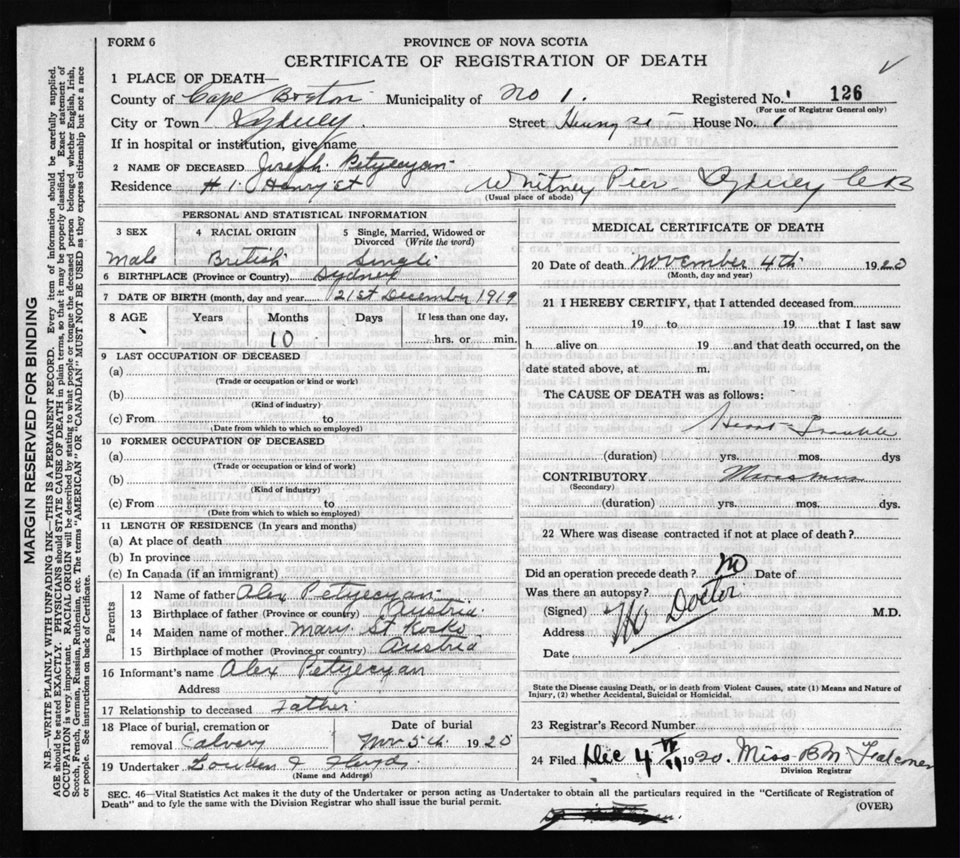 FORM 6
PROVINCE OF NOVA SCOTIA
CERTIFICATE OF REGISTRATION OF DEATH
1 PLACE OF DEATH—
County of Cape Breton Municipality of No 1. Registered No. 126
(For use of Registrar General only)
City or Town Sydney. Street Henry St House No. 1
If in hospital or institution, give name
2 NAME OF DECEASED Joseph Petyecyan
Residence # 1. Henry St Whitney Pier Sydney C B
(Usual place of abode)
PERSONAL AND STATISTICAL INFORMATION
3 SEX
male
4 RACIAL ORIGIN
British
5 Single, Married, Widowed or Divorced (Write the word)
Single
6 BIRTHPLACE (Province or Country) Sydney
7 DATE OF BIRTH (month, day and year) 21st December 1919
8 AGE Years Months Days If less than one day,
10 hrs. or min.
9 LAST OCCUPATION OF DECEASED
(a)
(Trade or occupation or kind or work)
(b)
(Kind of industry)
(c) From to
(Date from which to which so employed)
10 FORMER OCCUPATION OF DECEASED
(a)
(Trade or occupation or kind of work)
(b)
(Kind of industry)
(c) From to
(Date from which to which so employed)
11 LENGTH OF RESIDENCE (In years and months)
(a) At place of death
(b) In province
(c) In Canada (if an immigrant)
Parents
12 Name of father Alex Petyecyan
13 Birthplace of father (Province or country) Austria
14 Maiden name of mother Mary St Kosko
15 Birthplace of mother (Province or country) Austria
16 Informant's name Alex Petyecyan
Address
17 Relationship to deceased Father
18 Place of burial, cremation or removal Calvery
Date of burial
Nov 5th 1920
19 Undertaker Lowden & Floyd
(Name and Address)
MEDICAL CERTIFICATE OF DEATH
20 Date of death November 4th 1920
(Month, day and year)
21 I HEREBY CERTIFY, that I attended deceased from
19 to 19 that I last saw
h alive on 19 and that death occurred, on the
date stated above, at m.
The CAUSE OF DEATH was as follows:
Heart Trouble
(duration) yrs. mos. dys
CONTRIBUTORY
(Secondary)
(duration) yrs. mos. dys.
22 Where was disease contracted if not at place of death?
Did an operation precede death? no Date of
Was there an autopsy?
(Signed) No Doctor M.D.
Address
Date
State the Disease causing Death, or in death from Violent Causes, state (1) Means and Nature of
Injury, (2) whether Accidental, Suicidal or Homicidal.
23 Registrar's Record Number
24 Filed Dec 4 1920. Miss B M Falconer
Division Registrar
SEC. 46—Vital Statistics Act makes it the duty of the Undertaker or person acting as Undertaker to obtain all the particulars required in the "Certificate of Registration of
Death" and to fyle the same with the Division Registrar who shall issue the burial permit.
(OVER)
MARGIN RESERVED FOR BINDING
N.B.—WRITE PLAINLY WITH UNFADING INK—THIS IS A PERMANENT RECORD. Every item of information should be carefully supplied.
AGE should be stated EXACTLY. PHYSICIANS should STATE CAUSE OF DEATH in plain terms, so that it may be properly classified. Exact statement of
OCCUPATION is very important. RACIAL ORIGIN will be described by stating to what people or tongue the deceased person belonged whether English, Irish,
Scotch, French, German, Russian, Ruthenian, etc. The terms "AMERICAN" OR "CANADIAN" MUST NOT BE USED as they express citizenship but not a race
or people. See instructions on back of Certificate.